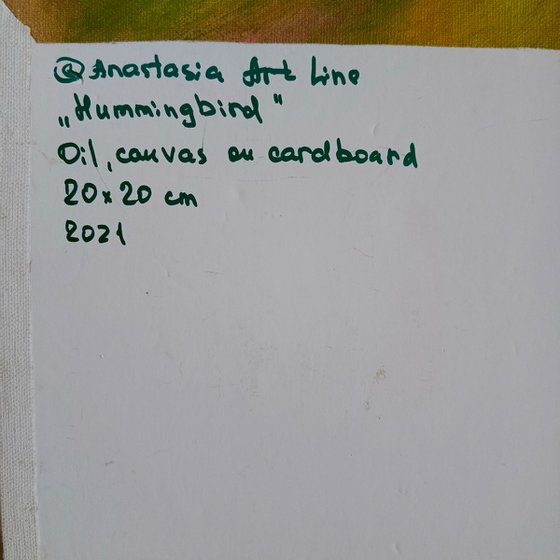 @Anastasia Art Line
„Hummingbird"
Oil, canvas on cardboard
20x20 cm
2021